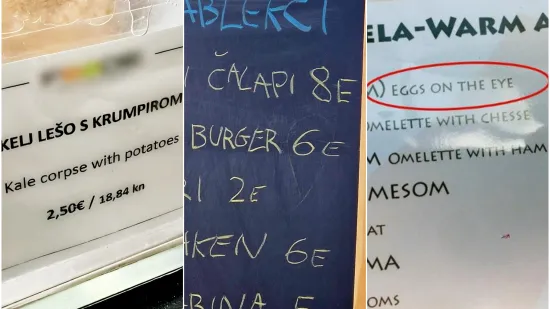 KELJ LEŠO S KRUMPIROM
Kale corpse with potatoes
2,50€ / 18,84 kn
ČALAPI 8E
BURGER 6E
2E
6E
ELA-WARM A
EGGS ON THE EYE
OMELETTE WITH CHESSE
OMELETTE WITH HAM
MESOM